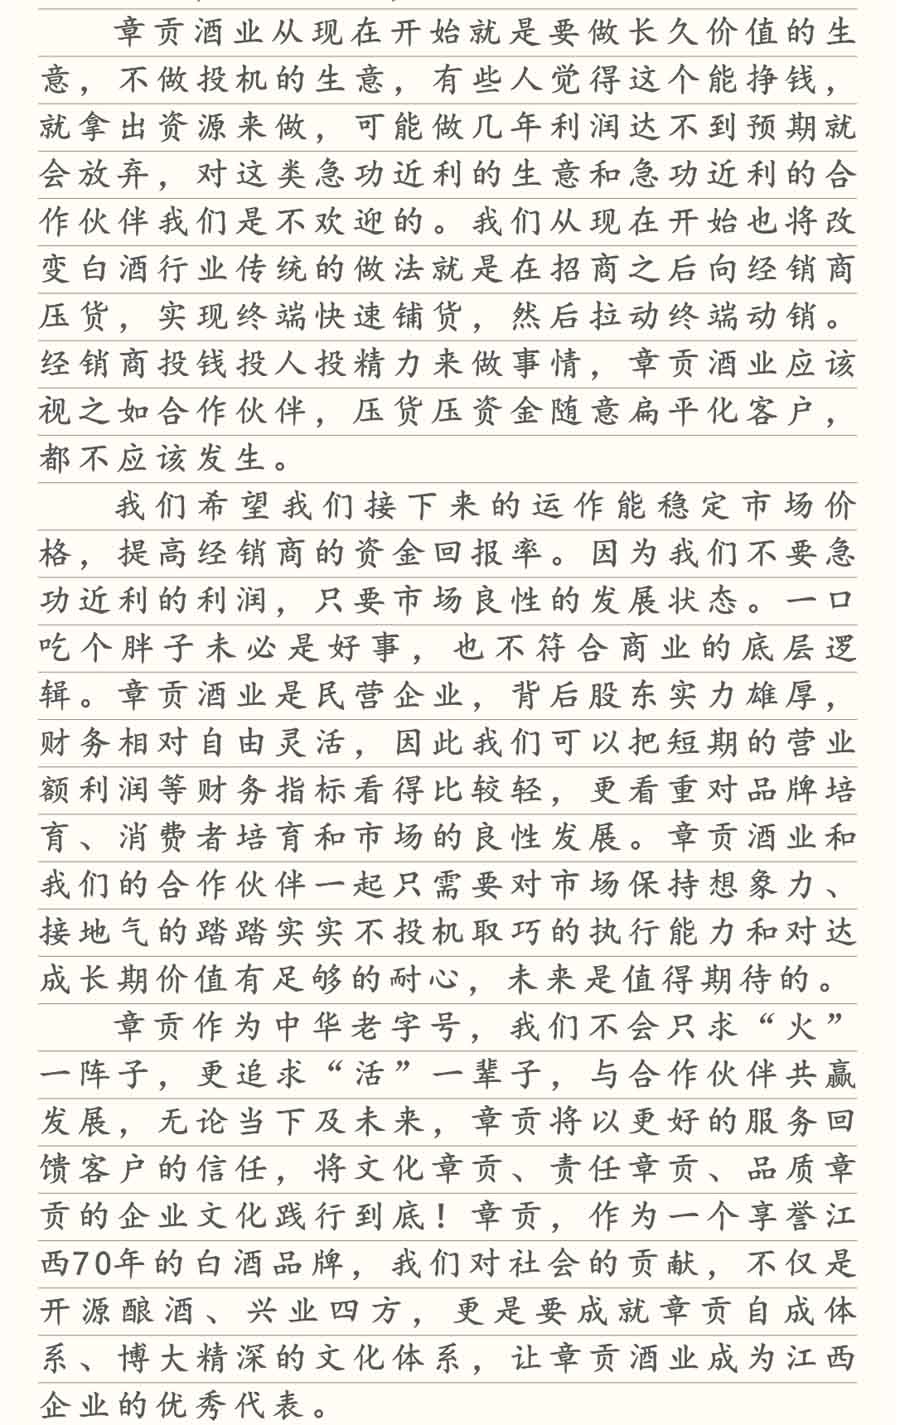 章贡酒业从现在开始就是要做长久价值的生
意，不做投机的生意，有些人觉得这个能挣钱，
就拿出资源来做，可能做几年利润达不到预期就
会放弃，对这类急功近利的生意和急功近利的合
作伙伴我们是不欢迎的。我们从现在开始也将改
变白酒行业传统的做法就是在招商之后向经销商
压货，实现终端快速铺货，然后拉动终端动销。
经销商投钱投人投精力来做事情，章贡酒业应该
视之如合作伙伴，压货压资金随意扁平化客户，
都不应该发生。
我们希望我们接下来的运作能稳定市场价
格，提高经销商的资金回报率。因为我们不要急
功近利的利润，只要市场良性的发展状态。一口
吃个胖子未必是好事，也不符合商业的底层逻
辑。章贡酒业是民营企业，背后股东实力雄厚，
财务相对自由灵活，因此我们可以把短期的营业
额利润等财务指标看得比较轻，更看重对品牌培
育、消费者培育和市场的良性发展。章贡酒业和
我们的合作伙伴一起只需要对市场保持想象力、
接地气的踏踏实实不投机取巧的执行能力和对达
成长期价值有足够的耐心，未来是值得期待的。
章贡作为中华老字号，我们不会只求“火”
一阵子，更追求“活”一辈子，与合作伙伴共赢
发展，无论当下及未来，章贡将以更好的服务回
馈客户的信任，将文化章贡、责任章贡、品质章
贡的企业文化践行到底！章贡，作为一个享誉江
西70年的白酒品牌，我们对社会的贡献，不仅是
开源酿酒、兴业四方，更是要成就章贡自成体
系、博大精深的文化体系，让章贡酒业成为江西
企业的优秀代表。